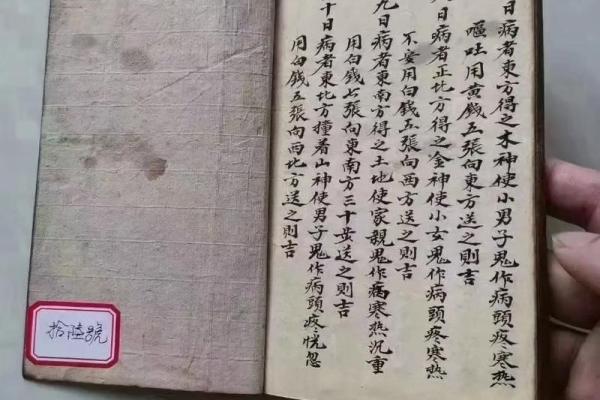 日病者東方得之木神使小男子鬼作病頭疼寒热
嘔吐用黄錢五張向東方送之則吉
日病者正北方得之金神使小女鬼作病頭疼寒热
不安用白錢五張向西方送之則吉
九日病者東南方得之土地使家親鬼作病寒热沉重
用白錢七張向東南方三十步送之則吉
十日病者東北方撞着山神使男子鬼作病頭疼恍忽
用白錢五張向西北方送之則吉
拾陸號